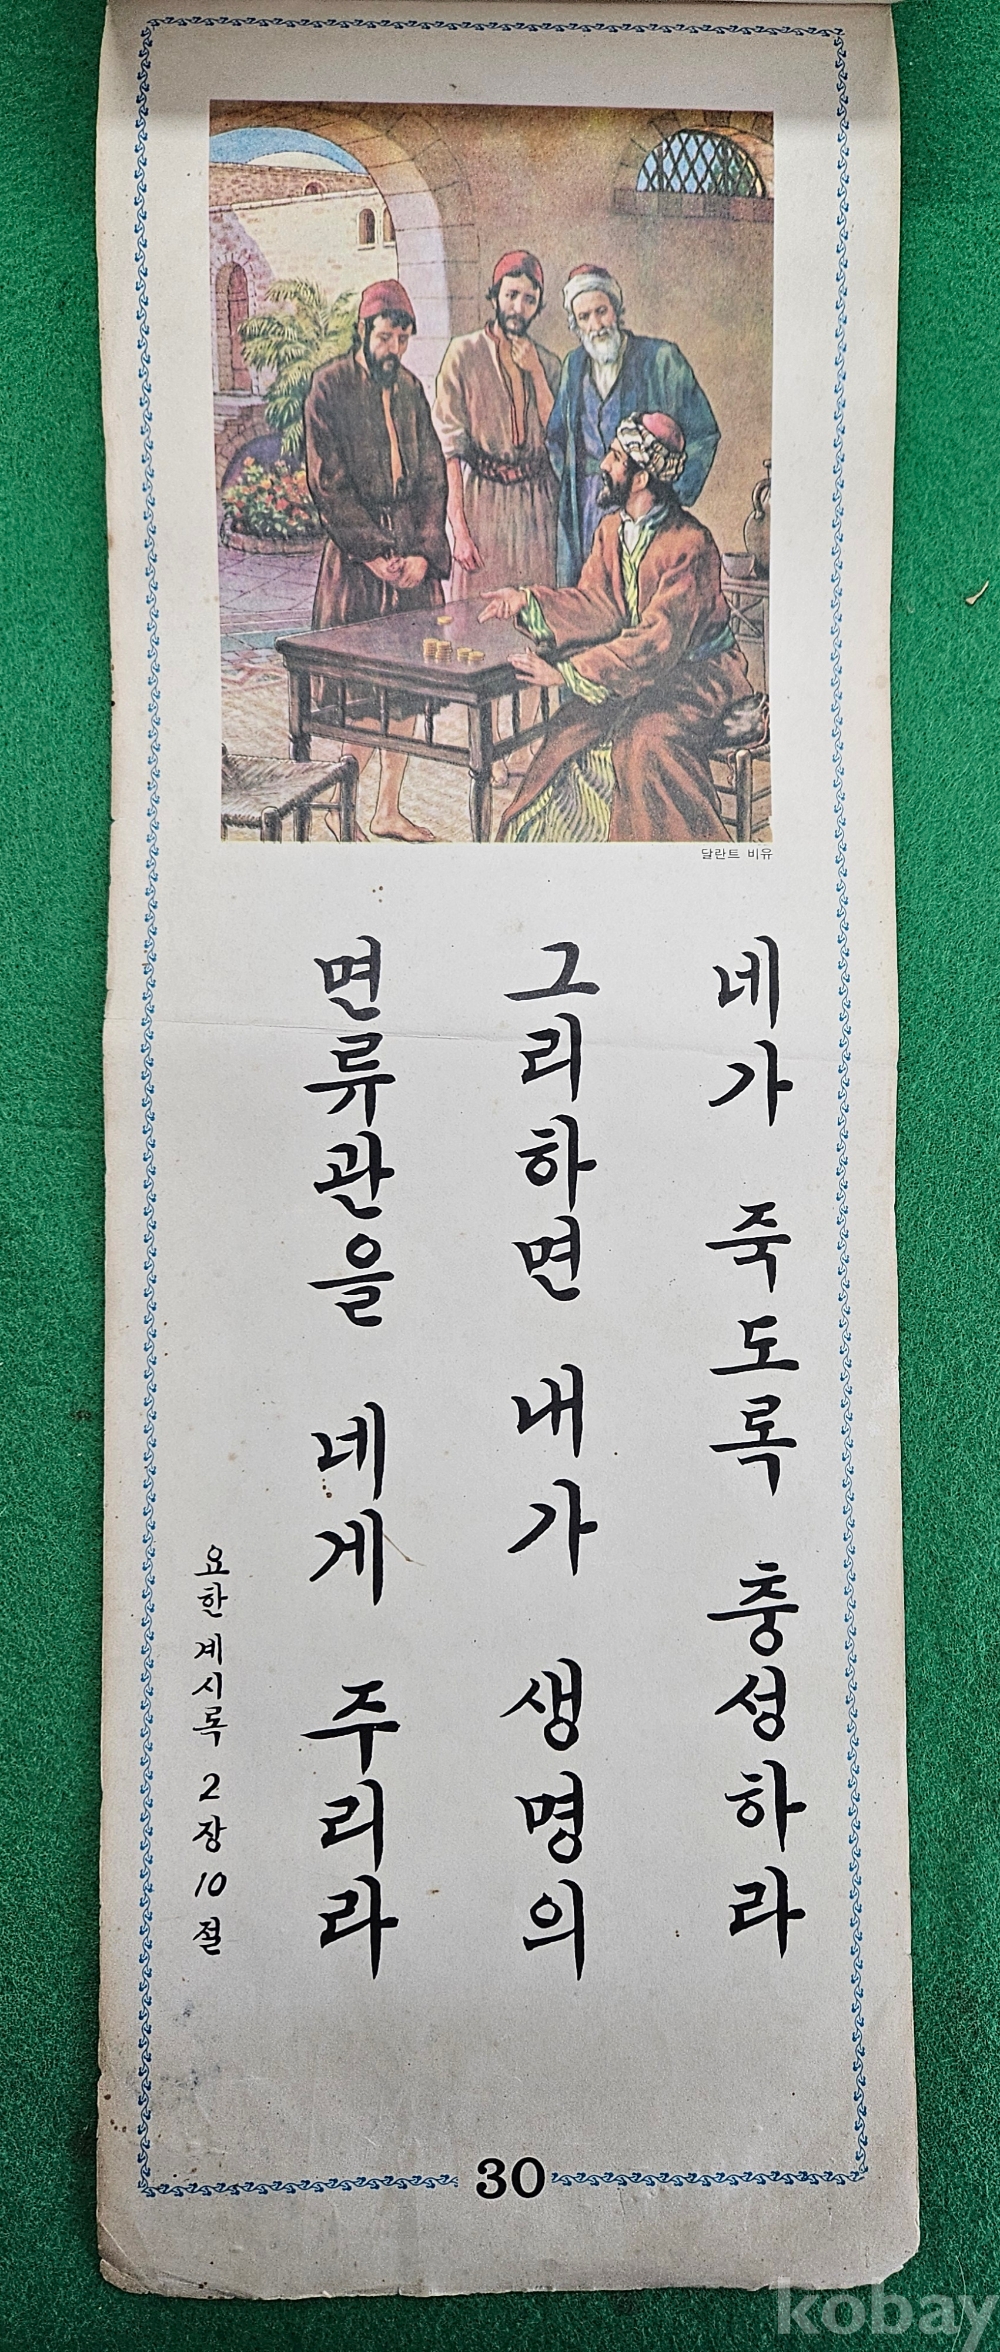 달란트 비유
네가 죽도록 충성하라
그리하면 내가 생명의
면류관을 네게 주리라
요한 계시록 2장 10절
30
kobay